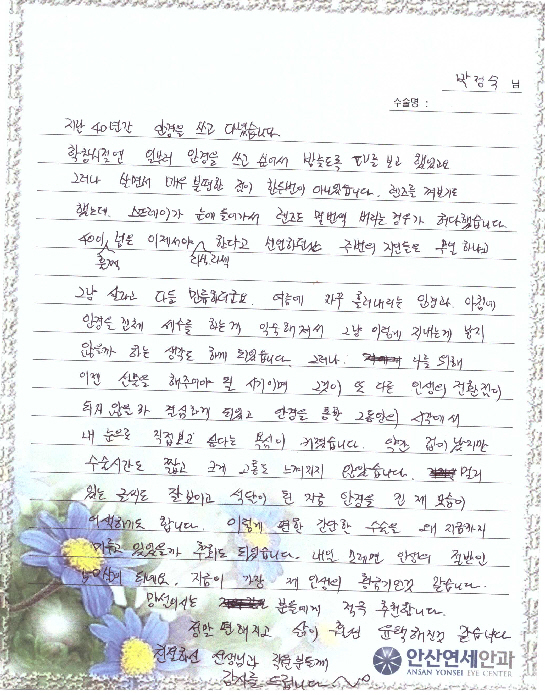 박정숙 님
수술명 :
지난 40년간 안경을 쓰고 다녔습니다
학창시절엔 일부러 안경을 쓰고 싶어서 밤늦도록 TV를 보고 했었고요
그러나 살면서 매우 불편한 점이 한두번이 아니었습니다. 렌즈를 껴보기도
했는데. 스프레이가 눈에 들어가서 렌즈도 몇번씩 버리는 경우가 허다했습니다.
40이 훌쩍 넘은 이제서야 라식, 라섹 한다고 선언하던날 주변의 지인들은 무얼 하냐고
그냥 살라고 다들 만류하더군요. 여름에 자꾸 흘러내리는 안경과 아침에
안경을 낀채 세수를 하는게 익숙해져서 그냥 이렇게 지내는게 낫지
않을까 하는 생각도 하게 되었습니다. 그러나. 나를 위해
이젠 선물을 해주어야 될 시기이며 그것이 또 다른 인생의 전환점이
되지 않을까 결심하게 되었고 안경을 통한 그동안의 시각에서
내 눈으로 직접보고 싶다는 욕심이 커졌습니다. 약간 겁이 났지만
수술시간도 짧고 크게 고통도 느껴지지 않았습니다. 멀리
있는 글씨도 잘보이고 식단이 된 지금 안경을 낀 제 모습이
어색하기도 합니다. 이렇게 편한 간단한 수술을 왜 지금까지
미루고 있었을까 후회도 되었습니다. 내일 모레면 인생의 절반인
되네요. 지금이 가장 제 인생의 황금기인것 같습니다.
망설이시는 분들에게 적극 추천합니다.
정말 편해지고 삶이 훨씬 윤택해진것 같습니다
선생님과 직원분들께
감사를 드립니다
안산연세안과
ANSAN YONSEI EYE CENTER